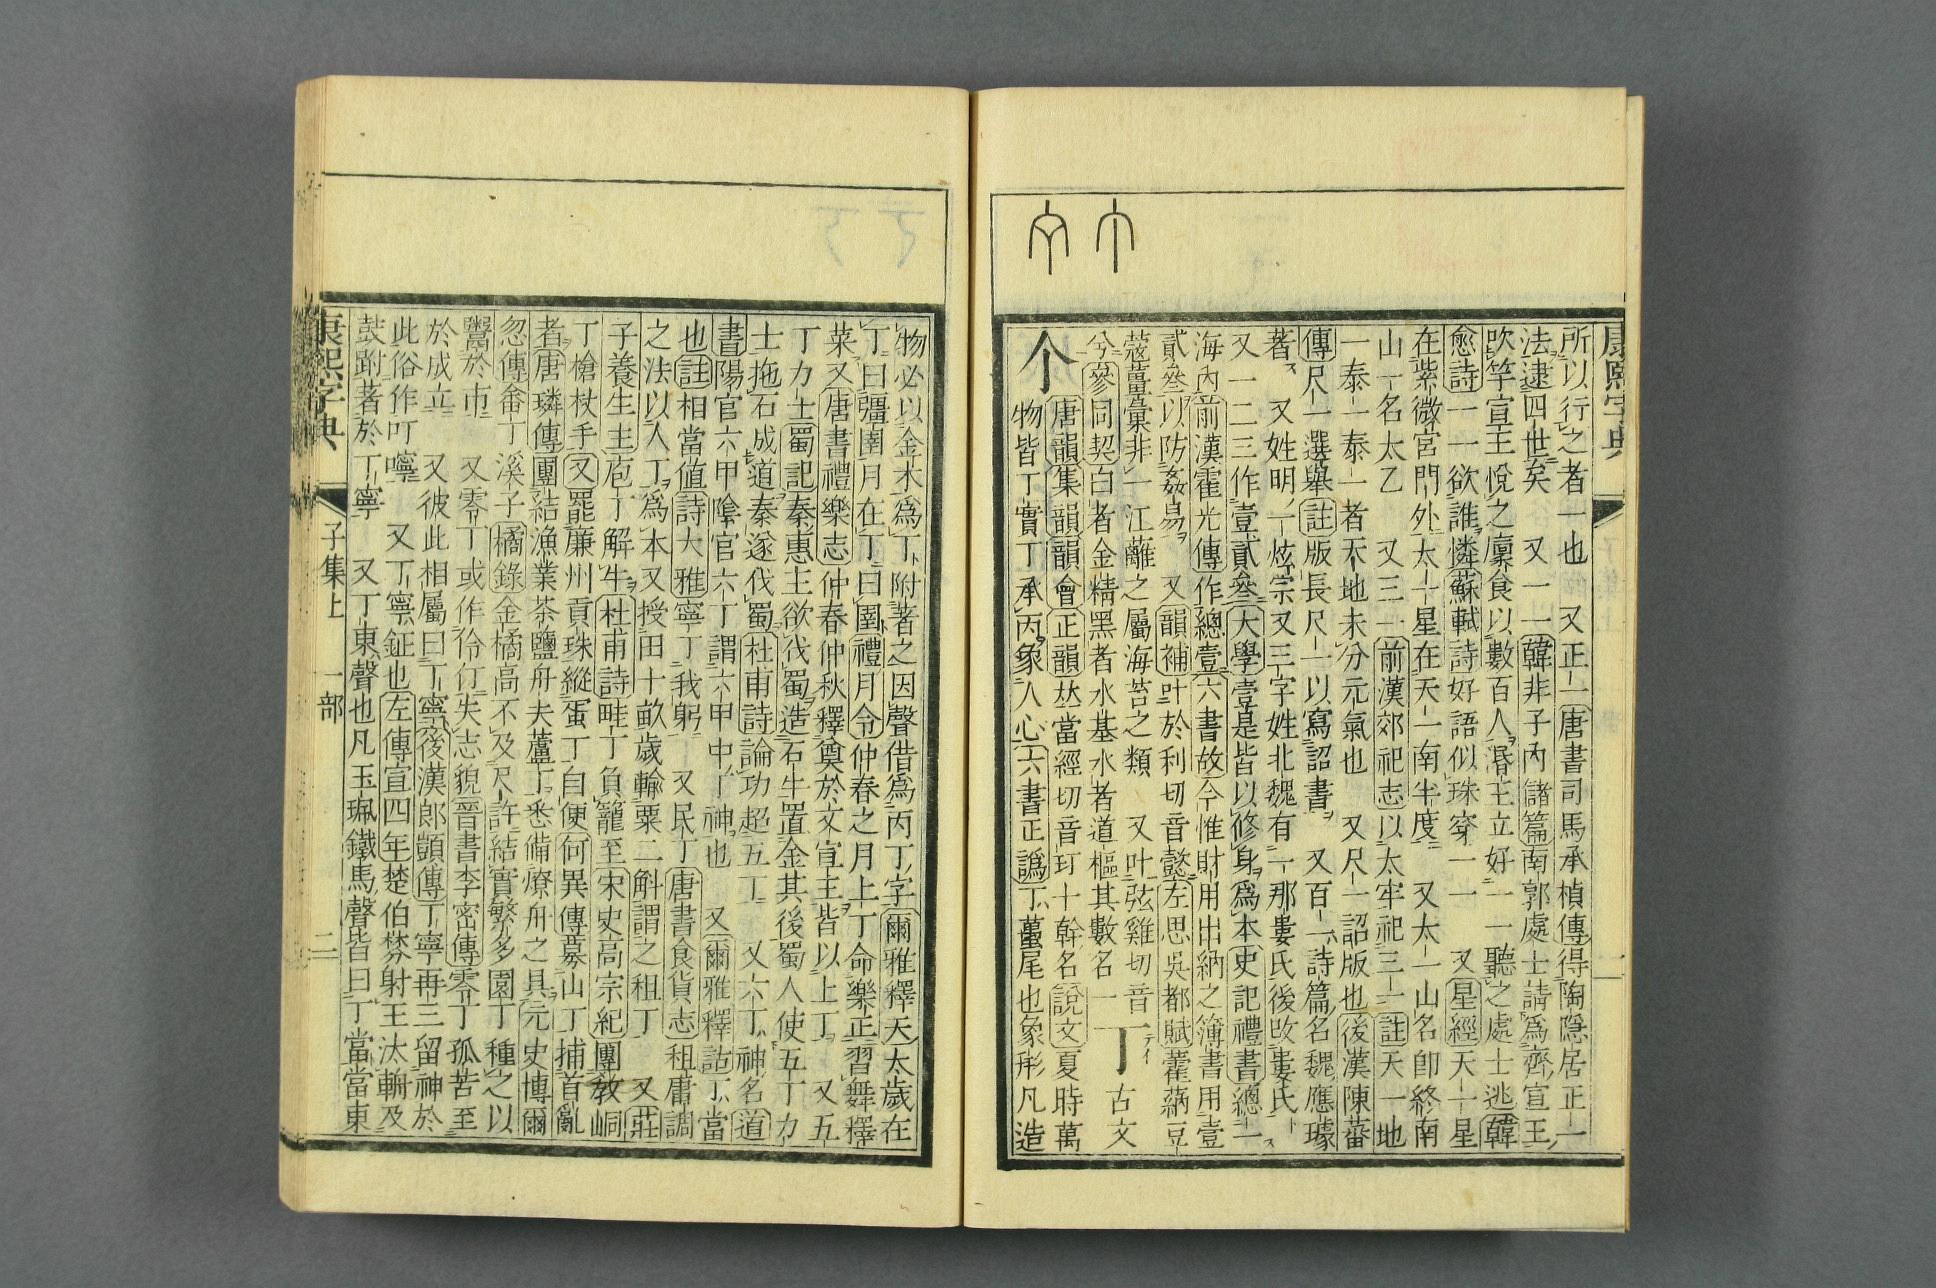 康熙字典
一
所以行之者一也　又正一唐書司馬承禎傳得陶隱居正一
法逮四世矣　又一一韓非子內儲篇南郭處士請爲齊宣王
吹竽宣王悅之廩食以數百人湣王立好一一聽之處士逃韓
愈詩一一欲誰憐蘇軾詩好語似珠穿一一　又星經天一星
在紫微宮門外太一星在天一南半度　又太一山名卽終南
山一名太乙　又三一前漢郊祀志以太牢祀三一註天一地
一泰一泰一者天地未分元氣也　又尺一詔版也後漢陳蕃
傳尺一選舉註版長尺一以寫詔書　又百一詩篇名魏應璩
著　又姓明一炫宗又三字姓北魏有一那婁氏後改婁氏
又一二三作壹貳叄大學壹是皆以修身爲本史記禮書總一
海內前漢霍光傳作總壹六書故今惟財用出納之簿書用壹
貳叄以防姦易　又韻補叶於利切音懿左思吳都賦藿蒳豆
蔻薑彙非一江蘺之屬海苔之類　又叶弦雞切音
兮參同契白者金精黑者水基水者道樞其數名一丁古文
个
唐韻集韻韻會正韻𠀤當經切音玎十幹名說文夏時萬
物皆丁實丁承丙象人心六書正譌丁蠆尾也象形凡造
物必以金木爲丁附著之因聲借爲丙丁字爾雅釋天太歲在
丁曰彊圉月在丁曰圉禮月令仲春之月上丁命樂正習舞釋
菜又唐書禮樂志仲春仲秋釋奠於文宣王皆以上丁　又五
丁力士蜀記秦惠王欲伐蜀造石牛置金其後蜀人使五丁力
士拖石成道秦遂伐蜀杜甫詩論功超五丁　又六丁神名道
書陽官六甲陰官六丁謂六甲中丁神也　又爾雅釋詁丁當
也註相當値詩大雅寧丁我躬　又民丁唐書食貨志租庸調
之法以人丁爲本又授田十畝歲輸粟二斛謂之租丁　又莊
子養生主庖丁解牛杜甫詩畦丁負籠至宋史高宗紀團敎峒
丁槍杖手又罷廉州貢珠縱蛋丁自便何異傳募山丁捕首亂
者唐璘傳團結漁業茶鹽舟夫蘆丁悉備燎舟之具元史博爾
忽傳畨丁溪子橘錄金橘高不及尺許結實繁多園丁種之以
鬻於市　又零丁或作伶仃失志貌晉書李密傳零丁孤苦至
於成立　又彼此相屬曰丁寧後漢郎顗傳丁寧再三留神於
此俗作叮嚀　又丁寧鉦也左傳宣四年楚伯棼射王汰輈及
鼓跗著於丁寧　又丁東聲也凡玉珮鐵馬聲皆曰丁當當東
康熙字典
子集上　一部
二